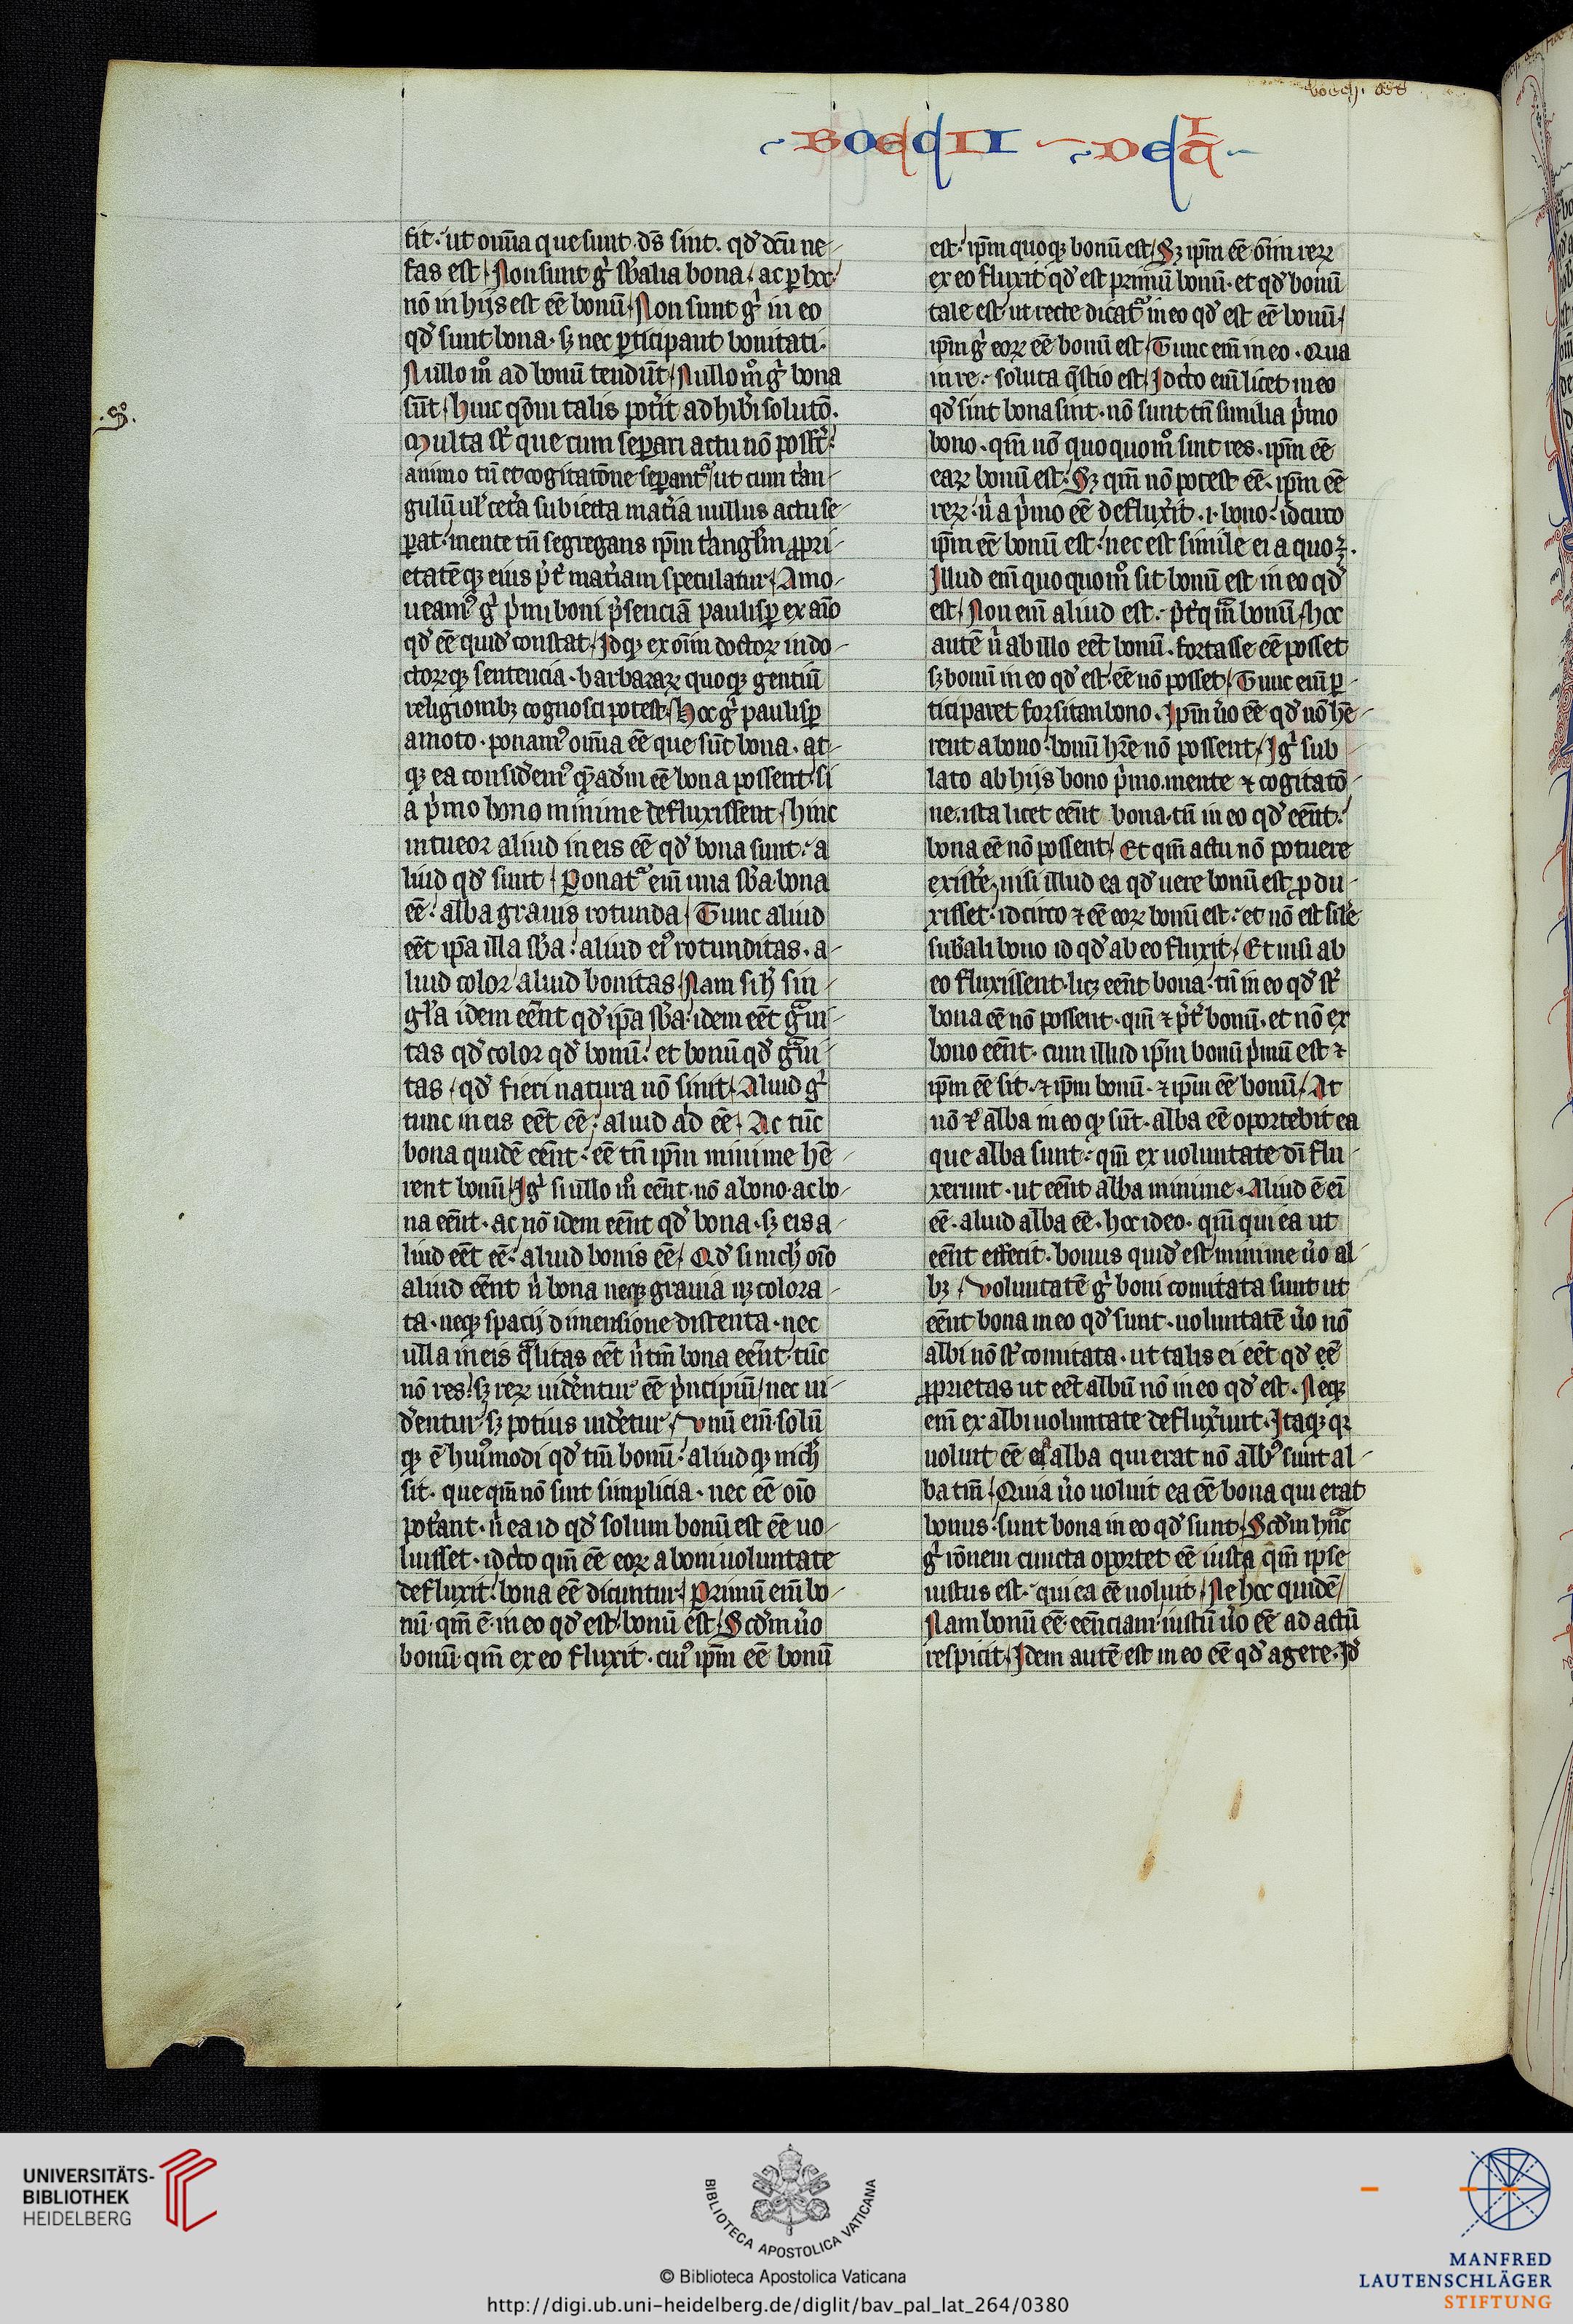 boecij. de
BOECII DE TA
.S.
fit. ut om̄ia que sunt ds̄ sint. qd̕ dc̄u ne-
fas est. Non sunt gͥ sb̄alia bona. ac ꝑ hoc
nō in hijs est eē bonū. Non sunt gͥ in eo
qd̕ sunt bona. sꝫ nec ꝑticipant bonitati.
Nullo mͦ ad bonū tendūt. Nullo mͦ gͥ bona
sūt. huic qōni talis pot̕it adhib̕i solutō.
Multa st̕ que cum seꝑari actu nō possūt.
animo tn̄ et cogitatōne seꝑant᷑. ut cum t̕an-
gulū ul̕ cet̕a subiecta mat̕ia nullus actu se-
ꝑat. mente tn̄ segregans ip̄m t̕angl̕m ꝓpri-
etatēqꝫ eius p̕t̕ mat̕iam speculatur. Amo-
ueamꝰ gͥ p̕mi boni p̕senciā paulisꝑ ex aīo
qd̕ eē quid̕ constat. Idqꝫ ex oīm doctoꝝ indo-
ctoꝝqꝫ sentencia. barbaraꝝ quoqꝫ gentiū
religionibꝫ cognosci potest. Hoc gͥ paulisꝑ
amoto. ponamꝰ om̄ia eē que sūt bona. at-
qꝫ ea consid̕emꝰ quēadm̄ eē bona possent. si
a p̕mo bono minime defluxissent. hinc
intueor aliud in eis eē qd̕ bona sunt. a
liud qd̕ sunt. Ponat᷑ em̄ una sb̄a bona
eē. alba grauis rotunda. Tunc aliud
eēt ip̄a illa sb̄a. aliud eiꝰ rotunditas. a-
liud color aliud bonitas. Nam si h̕ sin-
gl̕a idem eēnt qd̕ ip̄a sb̄a. idem eēt gͣui-
tas qd̕ color qd̕ bonū. et bonū qd̕ gͣui-
tas. qd̕ fieri natura nō sinit. Aliud gͥ
tunc in eis eēt eē. aliud ad eē. Ac tūc
bona quidē eēnt. eē tn̄ ip̄m minime hē-
rent bonū. Igͥ si ullo mͦ eēnt. nō a bono. ac bo-
na eēnt. ac nō idem eēnt qd̕ bona. sꝫ eis a-
liud eēt eē. aliud bonis eē. Qd̕ si nich̕ oīo
aliud eēnt nͥ bona neqꝫ grauia nꝫ colora-
ta. neqꝫ spacij dimensione distenta. nec
ulla in eis qͣlitas eēt nͥ tm̄ bona eēnt. tūc
nō res. sꝫ reꝝ uid̕entur eē p̕ncipiū. nec ui-
d̕entur sꝫ potius uid̕etur. Vnū em̄ solū
qꝫ ē huiꝰmodi qd̕ tm̄ bonū. aliudqꝫ nich̕
sit. que qm̄ nō sint simplicia. nec eē oīo
pot̕ant. nͥ ea id qd̕ solum bonū est eē uo-
luisset. idcͦto qm̄ eē eoꝝ a boni uoluntate
defluxit. bona eē dicuntur. Primū em̄ bo-
nū. qm̄ ē. in eo qd̕ est. bonū est. Scd̕m ūo
bonū. qm̄ ex eo fluxit. cuiꝰ ip̄m eē bonū
est. ip̄m quoqꝫ bonū est. Sꝫ ip̄m eē oīm reꝝ
ex eo fluxit qd̕ est primū bonū. et qd̕ bonū
tale est ut recte dicat᷑ in eo qd̕ est eē bonū.
ip̄m gͥ eoꝝ eē bonū est. Tunc em̄ in eo. Qua
in re. soluta qͣstio est. Idcͦto em̄ licet in eo
qd̕ sint bona sint. nō sunt tn̄ similia p̕mo
bono. qm̄ nō quoquomͦ sint res. ip̄m eē
eaꝝ bonū est. Sꝫ qm̄ nō potest eē. ip̄m eē
reꝝ. nͥ a p̕mo eē defluxit. i. bono. idcirco
ip̄m eē bonū est. nec est simile ei a quo ē.
Illud em̄ quoquomͦ sit bonū est in eo qd̕
est. Non em̄ aliud est. p̕t̕qm̄ bonū. hoc
autē nͥ ab illo eēt bonū. fortasse eē posset
sꝫ bonū in eo qd̕ est eē nō posset. Tunc em̄ ꝑ-
ticiparet forsitan bono. Ip̄m ūo eē qd̕ nō hē-
rent a bono. bonū hr̄e nō possent. Igͥ sub
lato ab hijs bono p̕mo. mente ⁊ cogitatō-
ne. ista licet eēnt bona. tn̄ in eo qd̕ eēnt.
bona eē nō possent. Et qm̄ actu nō potuere
exist̕e. nisi illud ea qd̕ uere bonū est ꝓdu-
xisset. idcirco ⁊ eē eoꝝ bonū est. et nō est sil̕e
sub̄ali bono id qd̕ ab eo fluxit. Et nisi ab
eo fluxissent. licꝫ eēnt bona. tn̄ in eo qd̕ st̕
bona eē nō possent. qm̄ ⁊ p̕t̕ bonū. et nō ex
bono eēnt. cum illud ip̄m bonū p̕mū est ⁊
ip̄m eē sit. ⁊ ip̄m bonū. ⁊ ip̄m eē bonū. At
nō ⁊ alba in eo qꝫ sūt. alba eē oportebit ea
que alba sunt. qm̄ ex uoluntate dī flu-
xerunt. ut eēnt alba minime. Aliud ē ei
eē. aliud alba eē. hoc ideo. qm̄ qui ea ut
eēnt effecit. bonus quid̕ est minime ūo al-
bꝫ. Voluntatē gͥ boni comitata sunt ut
eēnt bona in eo qd̕ sunt. uoluntatē ūo nō
albi nō st̕ comitata. ut talis ei eēt qd̕ eē
ꝓprietas ut eēt albū nō in eo qd̕ est. Neqꝫ
em̄ ex albi uoluntate defluxͥunt. Itaqꝫ qꝛ
uoluit eē ea alba qui erat nō albꝰ sunt al-
ba tm̄. Quia ūo uoluit ea eē bona qui erat
bonus. sunt bona in eo qd̕ sunt. Scd̕m hūc
gͥ rōnem cuncta oportet eē iusta qm̄ ipse
iustus est. qui ea eē uoluit. Ne hoc quidē.
Nam bonū eē eēnciam. iustū ūo eē ad actū
respicit. Idem autē est in eo eē qd̕ agere. Id̕
UNIVERSITÄTS-
BIBLIOTHEK
HEIDELBERG
BIBLIOTECA APOSTOLICA VATICANA
© Biblioteca Apostolica Vaticana
http://digi.ub.uni-heidelberg.de/diglit/bav_pal_lat_264/0380
MANFRED
LAUTENSCHLÄGER
STIFTUNG